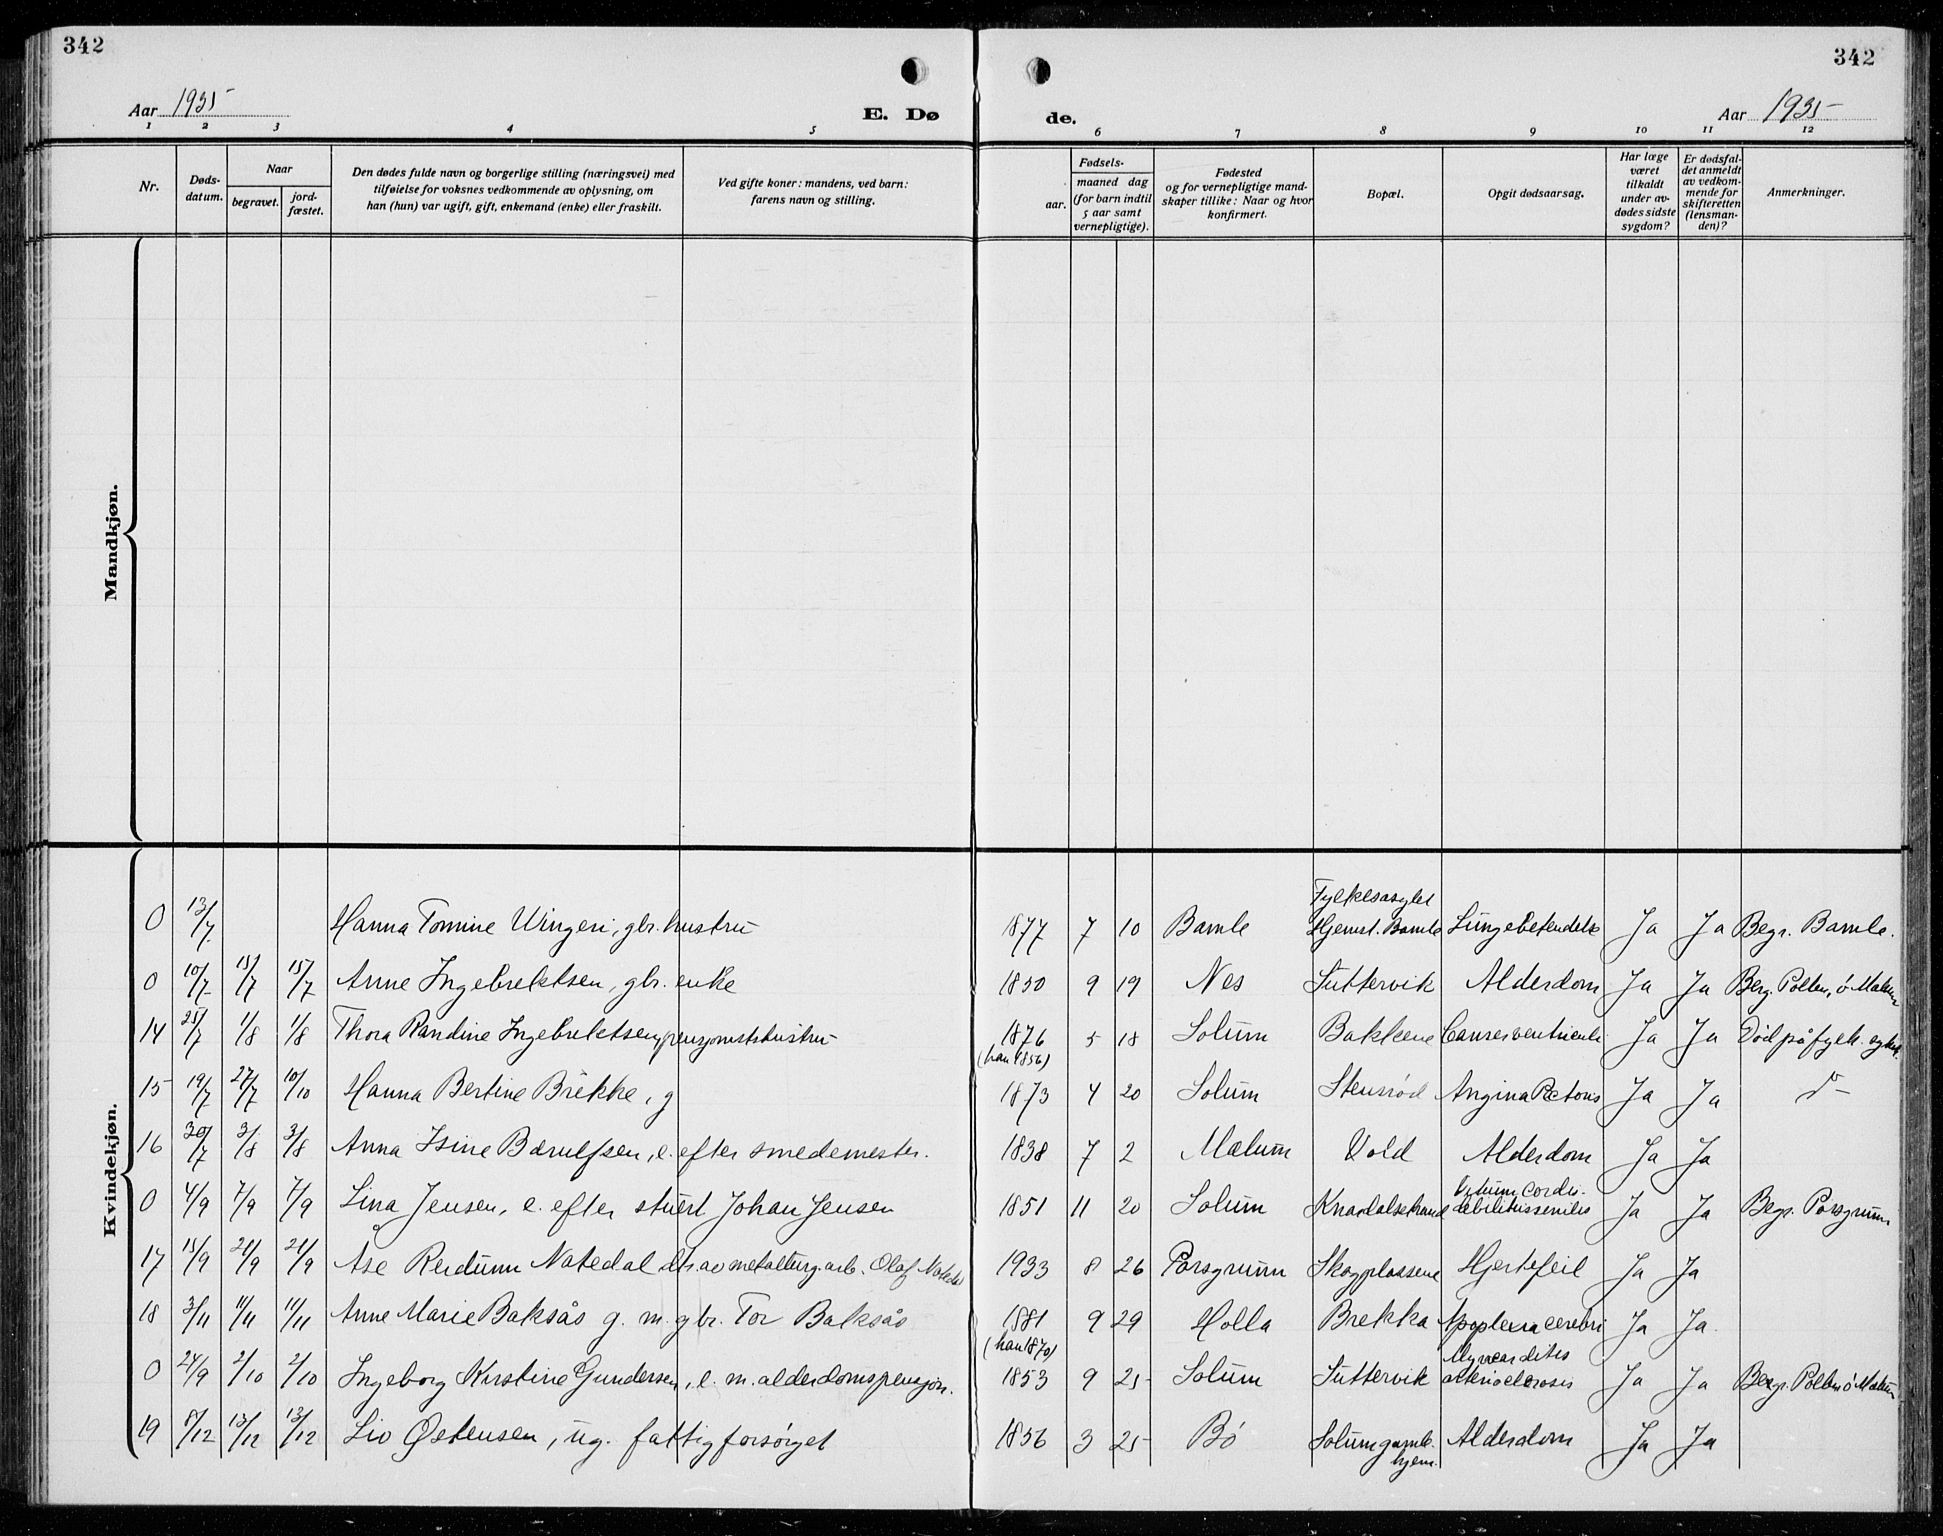 342
342
Aar 1935
E. Dø
de.
Aar 1935
1 2 3 4 5 6 7 8 9 10 11 12
Nr.
Døds-
datum.
Naar
begravet.
jord-
fæstet.
Den dødes fulde navn og borgerlige stilling (næringsvei) med
tilføielse for voksnes vedkommende av oplysning, om
han (hun) var ugift, gift, enkemand (enke) eller fraskilt.
Ved gifte koner: mandens, ved barn:
farens navn og stilling.
Fødsels-
aar.
maaned dag
(for barn indtil
5 aar samt
vernepligtige).
Fødested
og for vernepligtige mand-
skaper tillike: Naar og hvor
konfirmert.
Bopæl.
Opgit dødsaarsag.
Har læge
været
tilkaldt
under av-
dødes sidste
sygdom?
Er dødsfal-
det anmeldt
av vedkom-
mende for
skifteretten
(lensman-
den)?
Anmerkninger.
Mandkjøn.
Kvindekjøn.
0 13/7 Hanna Tomine Wingeri, gbr. hustru 1877 7 10 Bamle Fylkesasylet Hjemst. Bamle Lungebetendelse Ja Ja Begr. Bamle.
0 10/7 15/7 15/7 Anne Ingebrektsen, gbr. enke 1850 9 19 Nes Suttervik Alderdom Ja Ja Berg. Pollen, ö. Mælum
14 25/7 1/8 1/8 Thora Randine Ingebrektsen, pensjonistshustru 1876 (han 1856) 5 18 Solum Bakkene Cancer ventriculi Ja Ja Död på fylk. sykeh.
15 19/7 27/7 10/10 Hanna Bertine Brekke, g 1873 4 20 Solum Stensrød Angina Pectoris Ja Ja
16 30/7 3/8 3/8 Anna Isine Bærulfsen, e. efter smedemester. 1838 7 2 Mælum Vold Alderdom Ja Ja
0 4/9 7/9 7/9 Lina Jensen, e. efter stuert Johan Jensen 1851 11 20 Solum Knardalstrand Vitium cordis. debilitus senilis Ja Ja Begr. Porsgrunn
17 15/9 21/9 21/9 Åse Reidunn Natedal dtr. av metallurg. arb. Olaf Natedal 1933 8 26 Porsgrunn Skogplassene Hjertefeil Ja Ja
18 3/11 11/11 11/11 Anne Marie Baksås g. m. gbr. Tor Baksås 1881 (han 1870) 9 29 Holla Brekka Apoplexia cerebri Ja Ja
0 24/9 2/10 2/10 Ingeborg Kirstine Gundersen, e. m. alderdomspensjon. 1853 9 25 Solum Suttervik Myocarditis arteriosclerosis Ja Ja Begr. Pollen ö Mælum
19 8/12 13/12 13/12 Liv Østensen, ug. fattigforsørget 1856 3 25 Bö Solum gamle. hjem. Alderdom Ja Ja